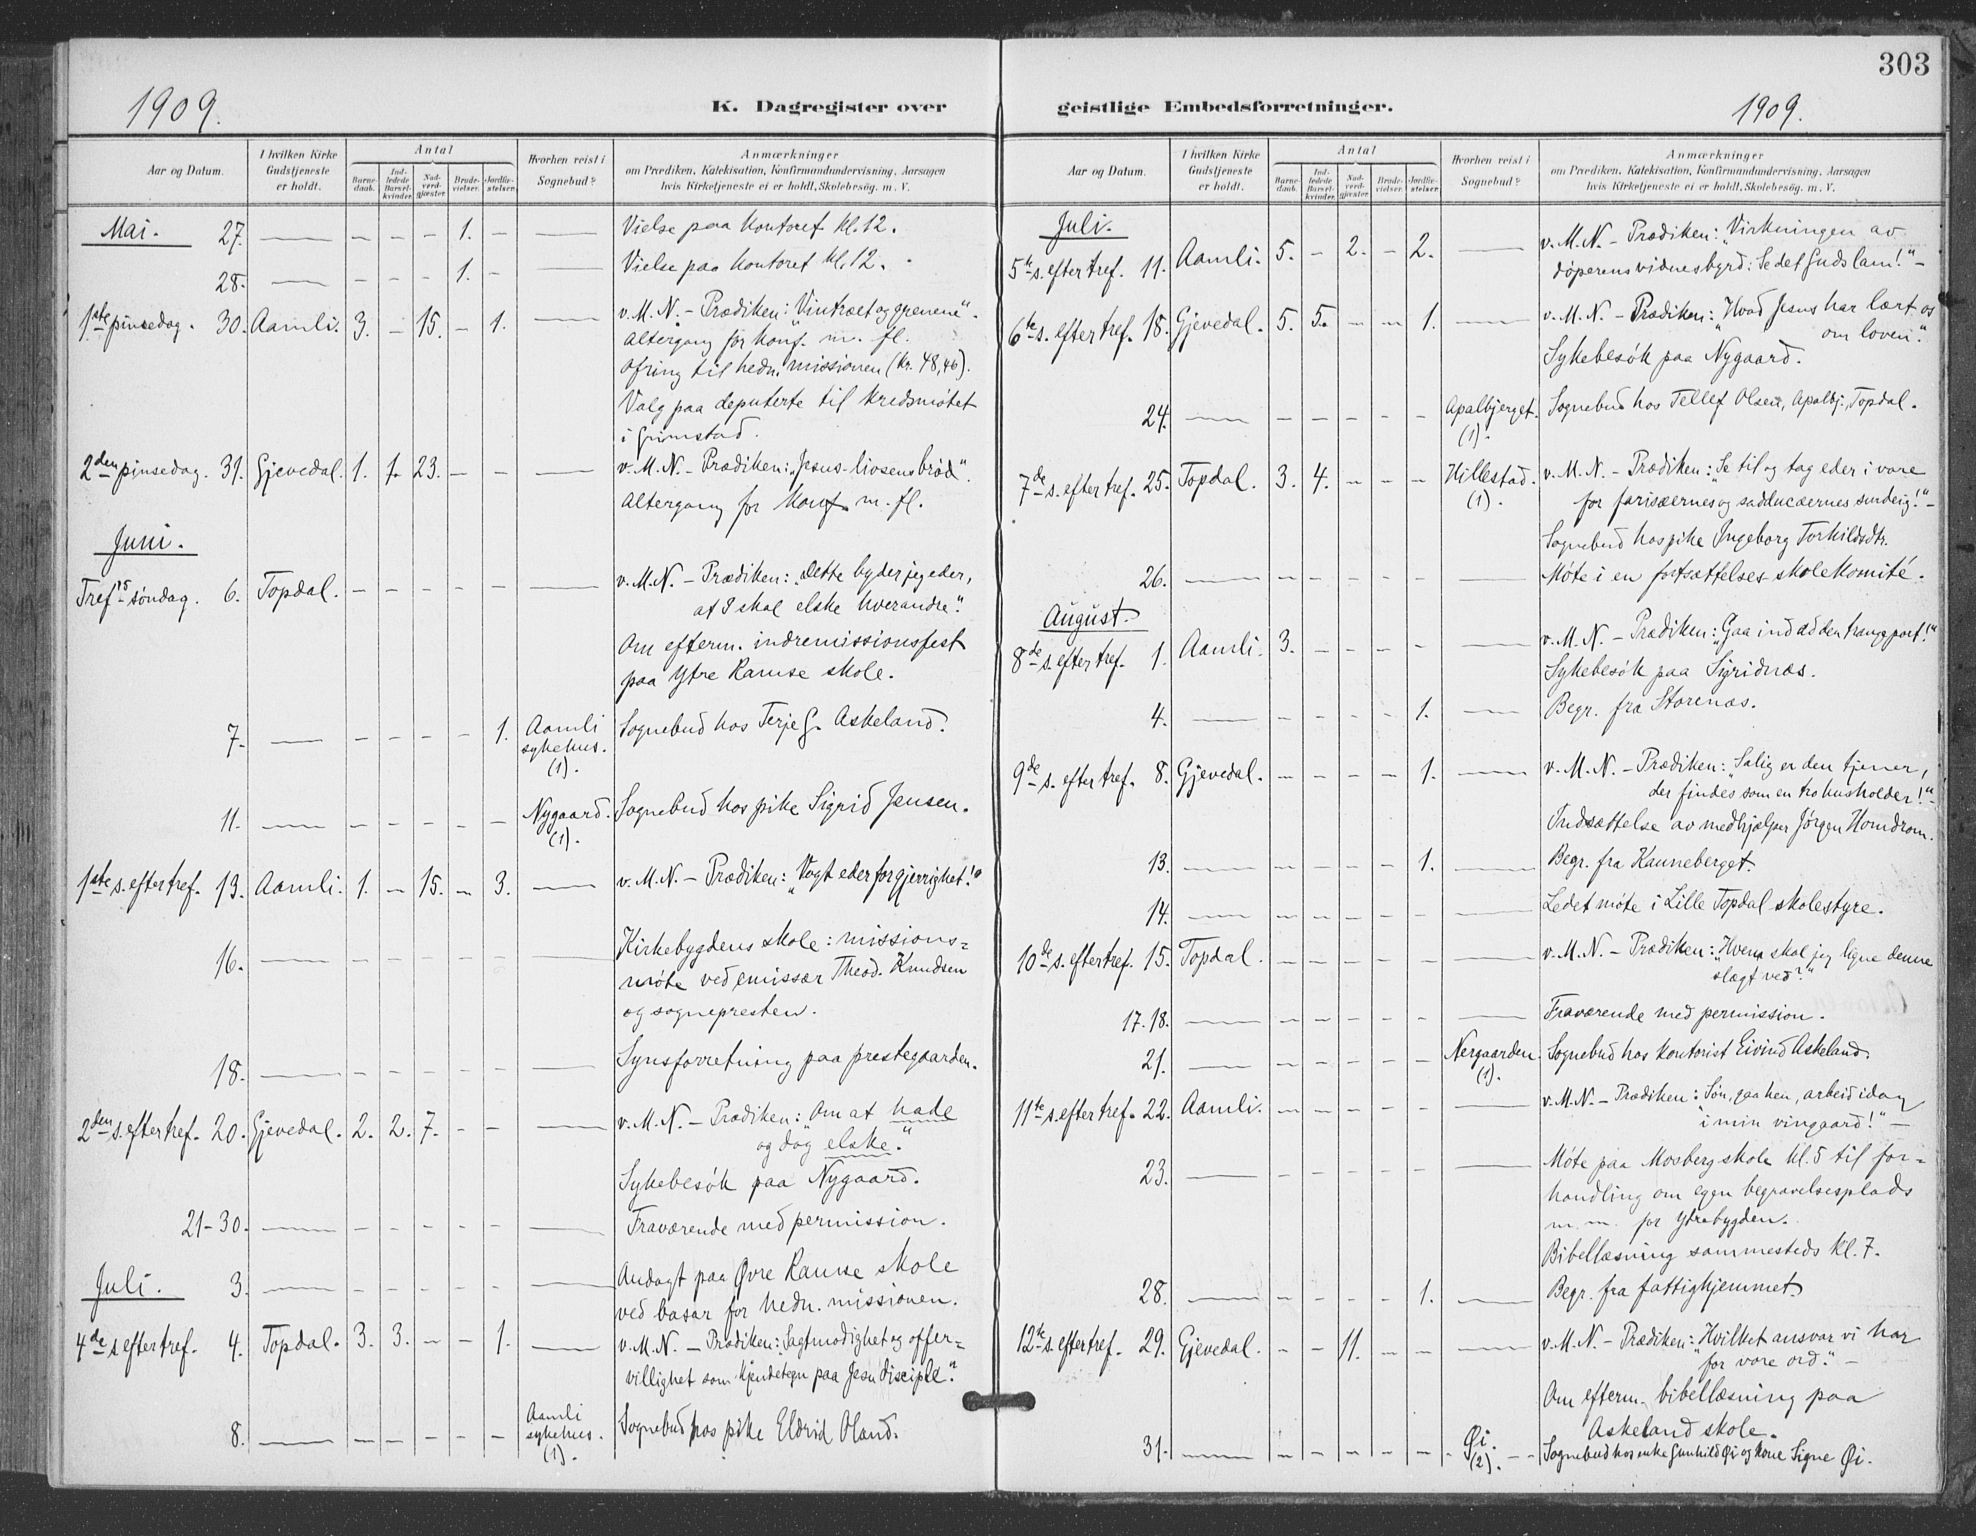 303
1909.
K. Dagregister over
geistlige Embedsforretninger.
1909.
Aar og Datum.
I hvilken Kirke
Gudstjeneste
er holdt.
Antal
Barne-
daab.
Ind-
ledede
Barsel-
kvinder.
Nad-
verd-
gjæster.
Brude-
vielser.
Jordfæ-
stelser.
Hvorhen reist i
Sognebud?
Anmærkninger
om Prædiken, Katekisation, Konfirmandundervisning, Aarsagen
hvis Kirketjeneste ei er holdt, Skolebesøg, m. V.
Mai. 27. — — — — 1. — — Vielse paa kontoret kl. 12.
28. — — — — 1. — — Vielse paa kontoret kl. 12.
1ste pinsedag. 30. Aamli. 3. — 15. — 1. — v. M. N. – Prædiken: „Vintræet og grenene“.
Altergang for konf. m. fl.
Ofring til hedn. missionen (kr. 48,46).
Valg paa deputerte til kredsmøtet
i Grimstad.
2den pinsedag. 31. Gjevedal. 1. 1. 23. — — — v. M. N. – Prædiken: „Jesus – livsens brød“.
Altergang for konf. m. fl.
Juni.
Tref.s søndag. 6. Topdal. — — — — — — v. M. N. – Prædiken: „Dette byder jeg eder,
at I skal elske hverandre“.
Om efterm. indremissionsfest
paa Ytre Ramse skole.
7. — — — — — 1. Aamli Sognebud hos Terje G. Askeland.
sykehus.
(1).
11. — — — — — — Nygaard. Sognebud hos pike Sigrid Jensen.
(1).
1ste s. efter tref. 13. Aamli. 1. — 15. — 3. — v. M. N. – Prædiken: „Vogt eder for gjerrighet!“
16. — — — — — — Kirkebygdens skole: missions-
møte ved emissær Theod. Knudsen
og sognepresten.
18. — — — — — — — Synsforretning paa prestegaarden.
2den s. efter tref. 20. Gjevedal. 2. 2. 7. — — — v. M. N. – Prædiken: „Om at hade
og dog elske“.
Sykebesøk paa Nygaard.
21–30. — — — — — — — Fraværende med permission.
Juli. 3. — — — — — — — Andagt paa Øvre Ramse skole
ved basar for hedn. missionen.
4de s. efter tref. 4. Topdal. 3. 3. — — 1. — v. M. N. – Prædiken: „Sagtmodighet og offer-
villighet som kjendetegn paa Jesu disciple“.
8. — — — — — — Aamli Sognebud hos pike Eldrid Oland.
sykehus.
(1).
Aar og Datum.
I hvilken Kirke
Gudstjeneste
er holdt.
Antal
Barne-
daab.
Ind-
ledede
Barsel-
kvinder.
Nad-
verd-
gjæster.
Brude-
vielser.
Jordfæ-
stelser.
Hvorhen reist i
Sognebud?
Anmærkninger
om Prædiken, Katekisation, Konfirmandundervisning, Aarsagen
hvis Kirketjeneste ei er holdt, Skolebesøg, m. V.
Juli.
5te s. efter tref. 11. Aamli. 5. — 2. — 2. — v. M. N. – Prædiken: „Virkningen av
døperens vidnesbyrd: Se det Guds lam!“ –
6te s. efter tref. 18. Gjevedal. 5. 5. — — 1. — v. M. N. – Prædiken: „Hvad Jesus har lært os
om loven“.
Sykebesøk paa Nygaard.
24. — — — — — — Apalbjerget. Sognebud hos Tellef Olsen, Apalbj., Topdal.
(1).
7de s. efter tref. 25. Topdal. 3. 4. — — — Hillestad. v. M. N. – Prædiken: „Se til og tag eder i vare
(1). for farisæernes og sadducæernes surdeig!“ –
Sognebud hos pike Ingeborg Torkildsdtr.
26. — — — — — — — Møte i en fortsættelsesskolekomité.
August.
8de s. efter tref. 1. Aamli. 3. — — — — — v. M. N. – Prædiken: „Gaa ind ad den trange port!“
Sykebesøk paa Sigridnæs.
4. — — — — — 1. — Begr. fra Storenæs.
9de s. efter tref. 8. Gjevedal. — — — — 1. — v. M. N. – Prædiken: „Salig er den tjener,
der findes som en tro husholder!“ –
Indsættelse av medhjælper Jørgen Homdrom.
13. — — — — — 1. — Begr. fra Kanneberget.
14. — — — — — — — Ledet møte i Lille Topdal skolestyre.
10de s. efter tref. 15. Topdal. — — — — — — v. M. N. – Prædiken: „Hvem skal jeg ligne denne
slægt ved?“
17.18. — — — — — — — Fraværende med permission.
21. — — — — — — Nergaarden Sognebud hos kontorist Eivind Askeland.
(1).
11te s. efter tref. 22. Aamli. — — — — — — v. M. N. – Prædiken: „Søn, gaa hen, arbeid idag
i min vingaard!“ –
23. — — — — — — — Møte paa Mosberg skole kl. 5 til for-
handling om egen begravelsesplads
m. m. for Ytrebygden.
Bibellæsning sammesteds kl. 7.
28. — — — — — 1. — Begr. fra fattighjemmet.
12te s. efter tref. 29. Gjevedal. — — 11. — — — v. M. N. – Prædiken: „Hvilket ansvar vi har
for vore ord“. –
Om efterm. bibellæsning paa
Askeland skole.
31. — — — — — — Øi. Sognebud hos enke Gunhild Øi og kone Signe Øi.
(2).